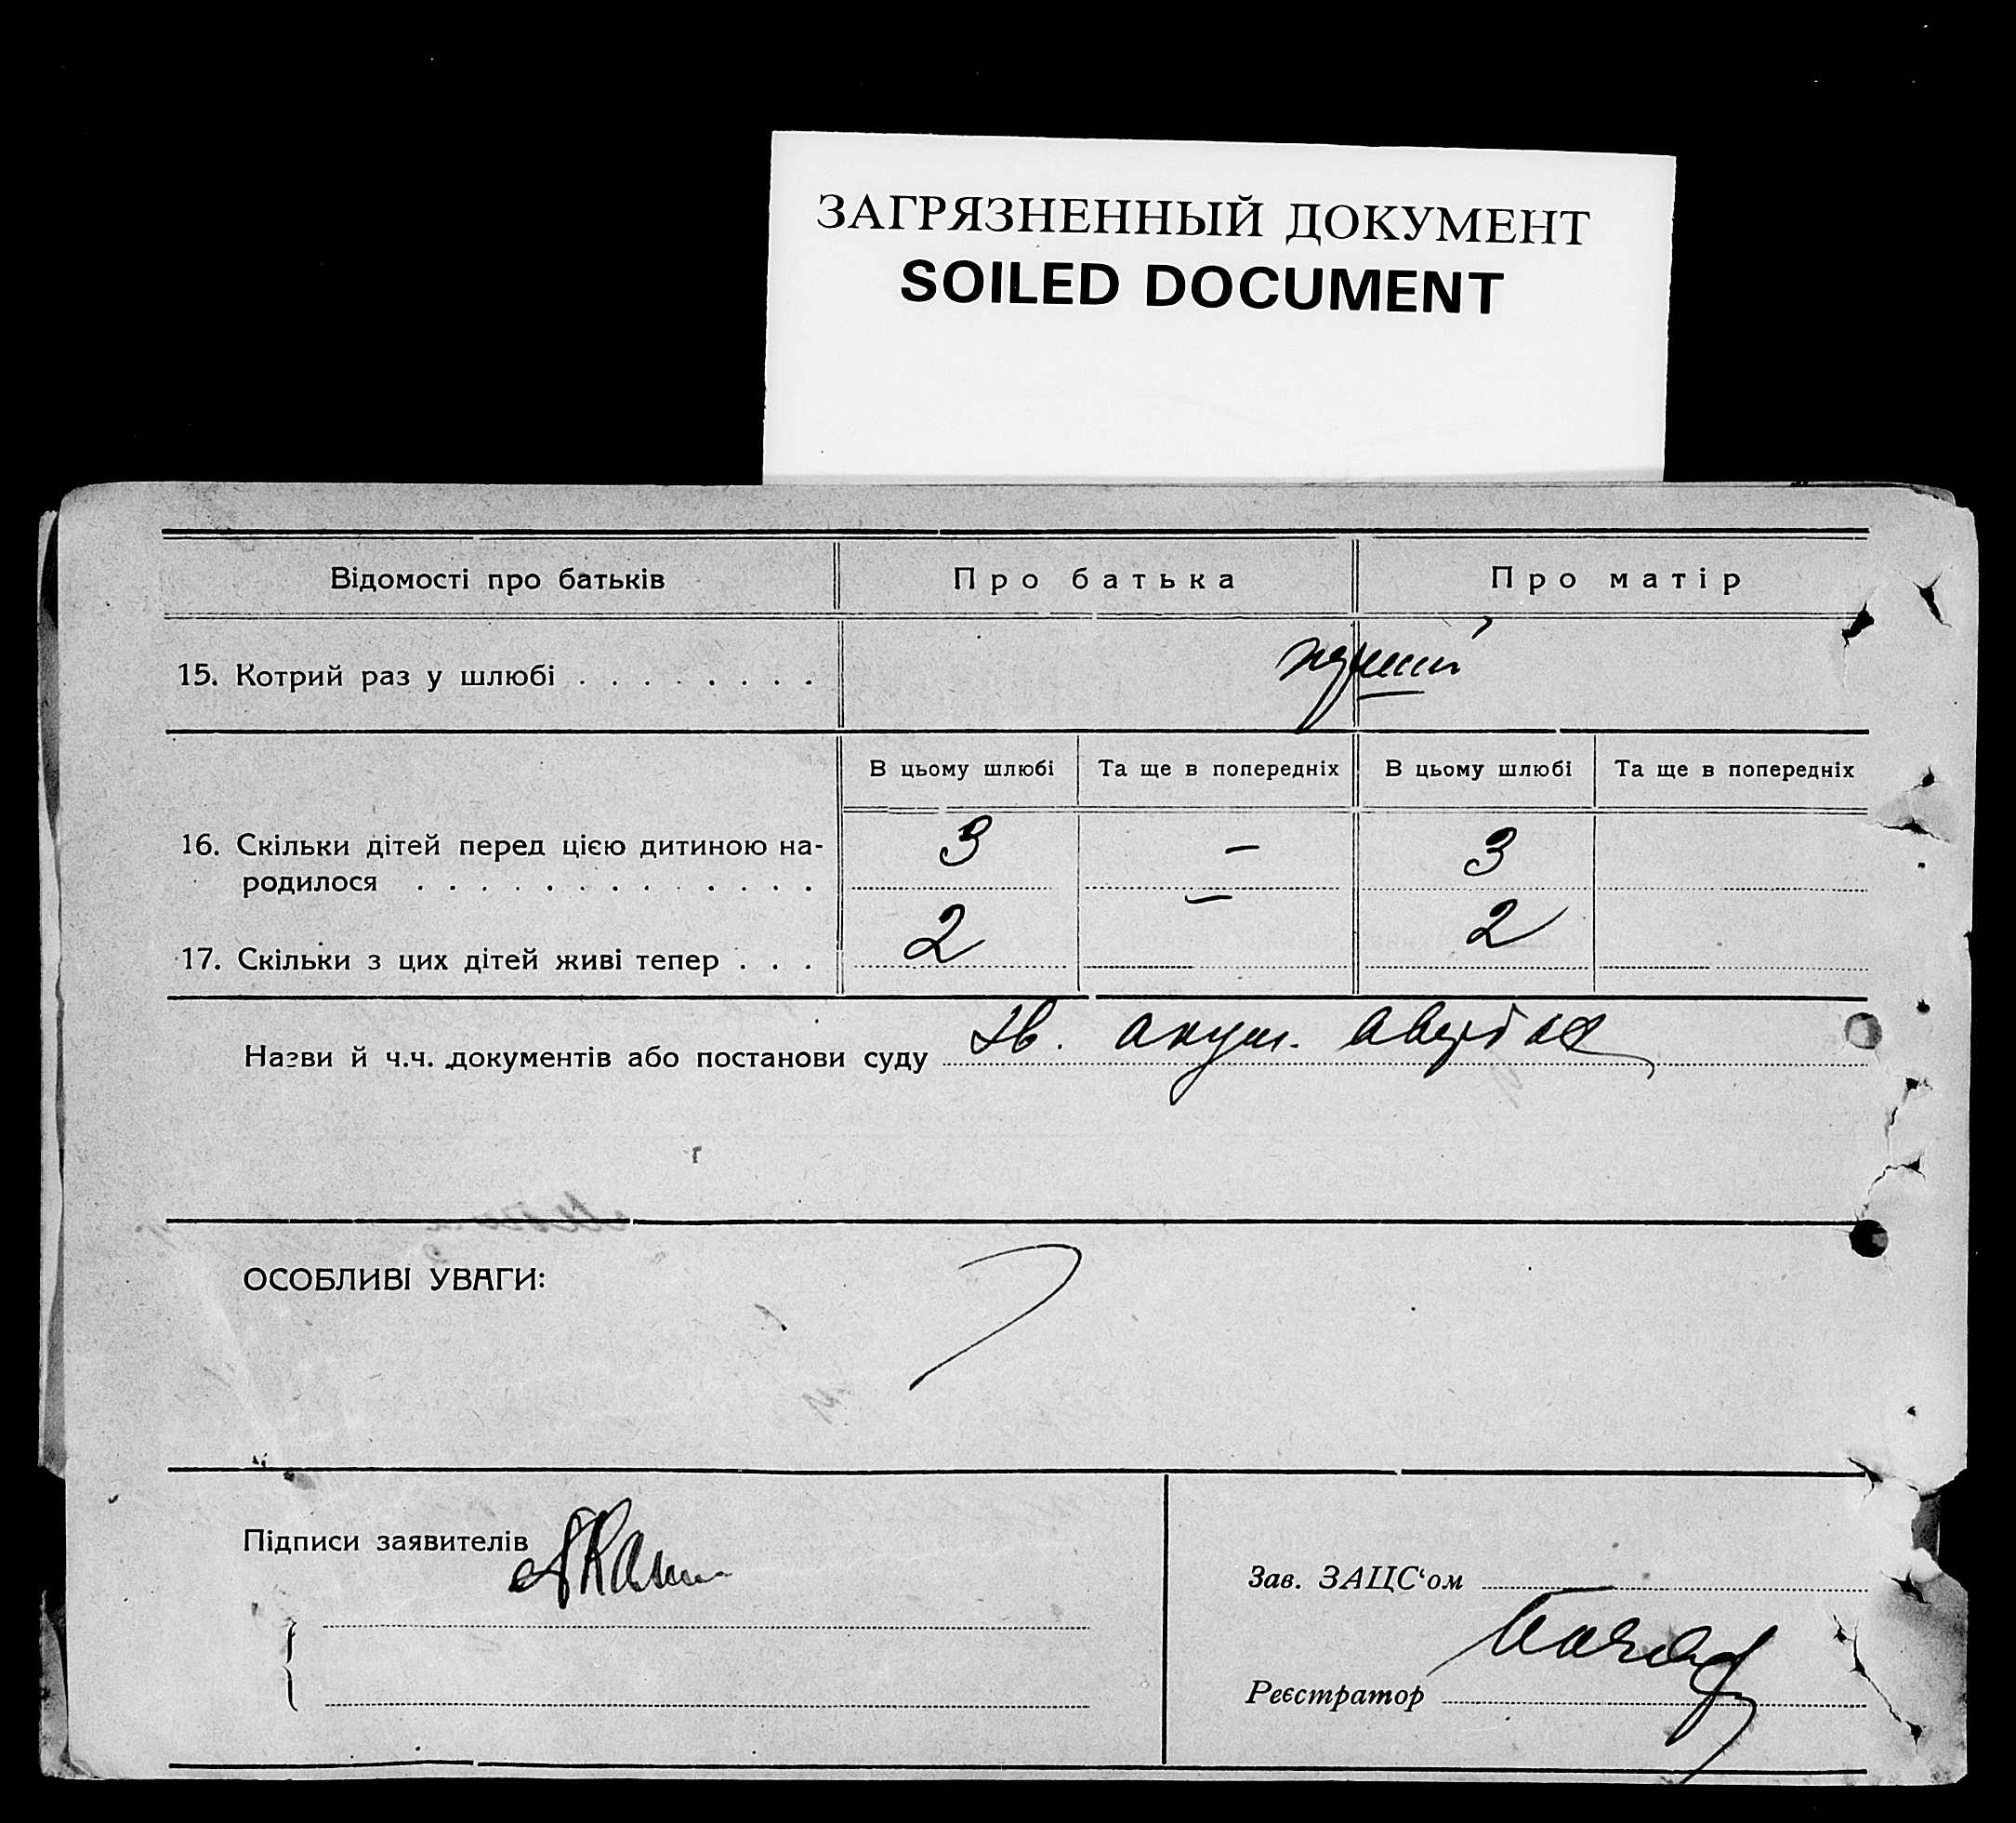 ЗАГРЯЗНЕННЫЙ ДОКУМЕНТ
SOILED DOCUMENT
Відомості про батьків Про батька Про матір
15. Котрий раз у шлюбі . . . . . . . .
В цьому шлюбі Та ще в попередніх В цьому шлюбі Та ще в попередніх
16. Скільки дітей перед цією дитиною на- 3 — 3
родилося . . . . . . . . . . . . .
17. Скільки з цих дітей живі тепер . . . 2 — 2
Назви й ч.ч. документів або постанови суду акуш.
ОСОБЛИВІ УВАГИ:
Підписи заявителів
Зав. ЗАЦС‘ом
Реєстратор